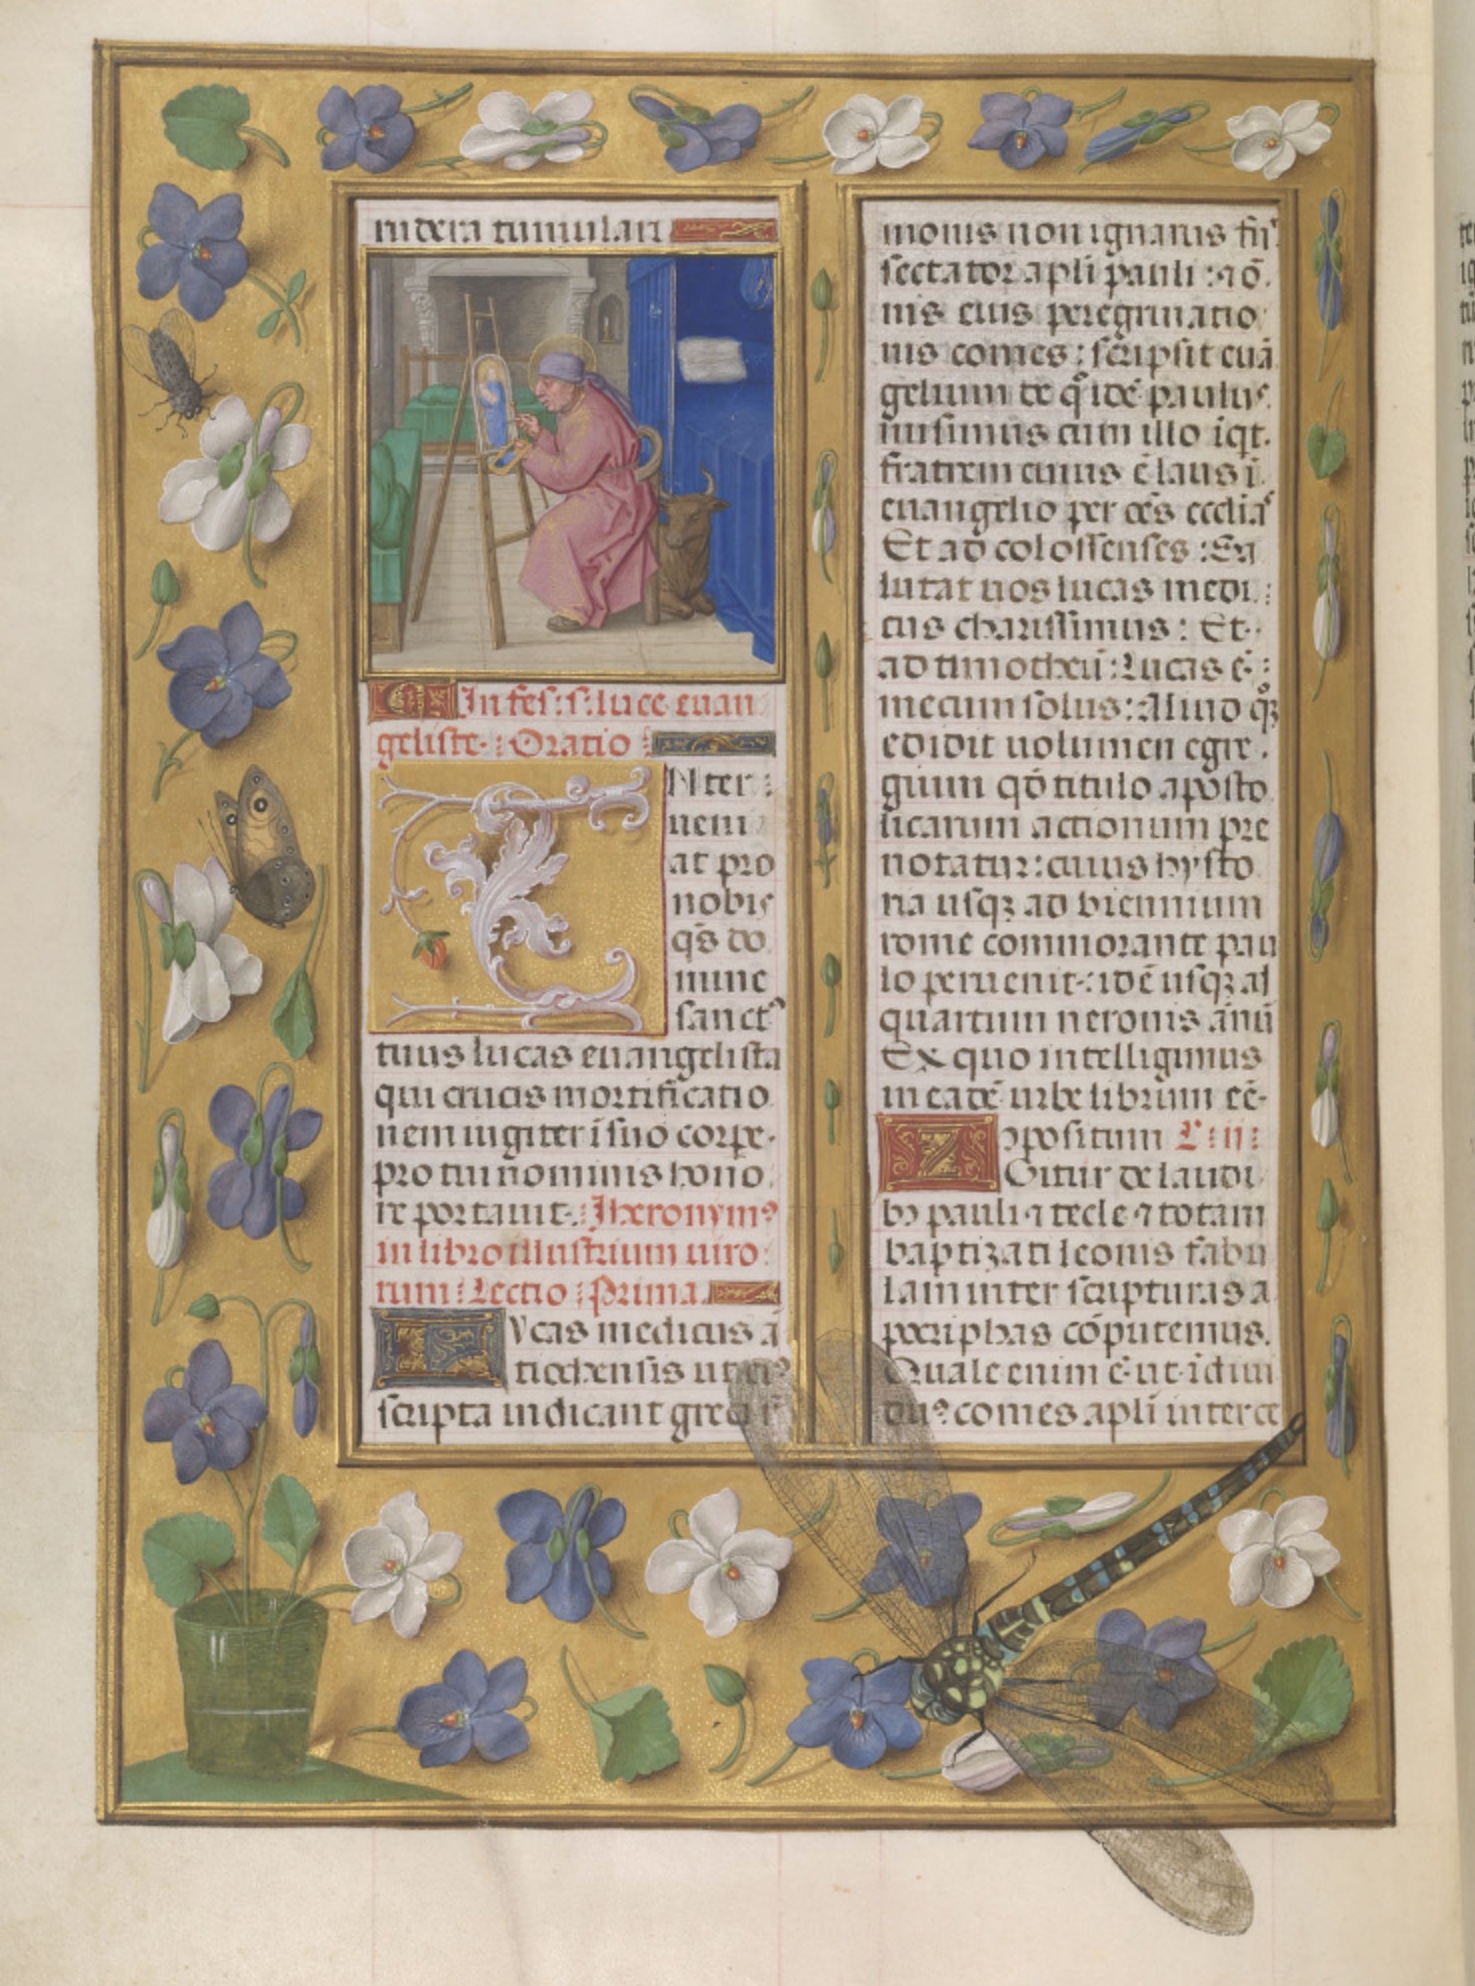 in dexta tumulari
In fes: s: luce euan
geliste: Oratio
INter
ueni
at pro
nobis
qs̄ do
mine
sanctꝰ
tuus lucas euangelista
qui crucis mortificatio
nem iugiter ī suo corpe
pro tui nominis hono
re portauit: Iheronymꝰ
in libro illustrium uiro
rum: Lectio: Prima
LVcas medicus ā
tiochensis ut eiꝰ
scripta indicant greci
monis non ignarus fuꝰ
sectator apli pauli: ⁊ ō
nis eius peregrinatio
nis comes: scripsit euā
gelium de q̊ idē paulus
misimus cum illo īqt
fratrem cuius ē laus ī
euangelio per oēs ecclias
Et ad colossenses: Sa
lutat uos lucas medi
cus charissimus: Et
ad timotheū: Lucas ē
mecum solus: Aliud qꝫ
edidit uolumen egre
gium qd̄ titulo aposto
licarum actionum pre
notatur: cuius hysto
ria usqꝫ ad biennium
rome commorante pau
lo peruenit: idē usqꝫ ad
quartum neronis ānū
Ex quo intelligimus
in eadē urbe librum eē
ꝯpositum L: ii:
IGitur de laudi
bꝰ pauli ⁊ tecle ⁊ totam
baptizati leonis fabu
lam inter scripturas a
pocriphas cōputemus.
Quale enim ē ut īdiui
duꝰ comes apli inter ce